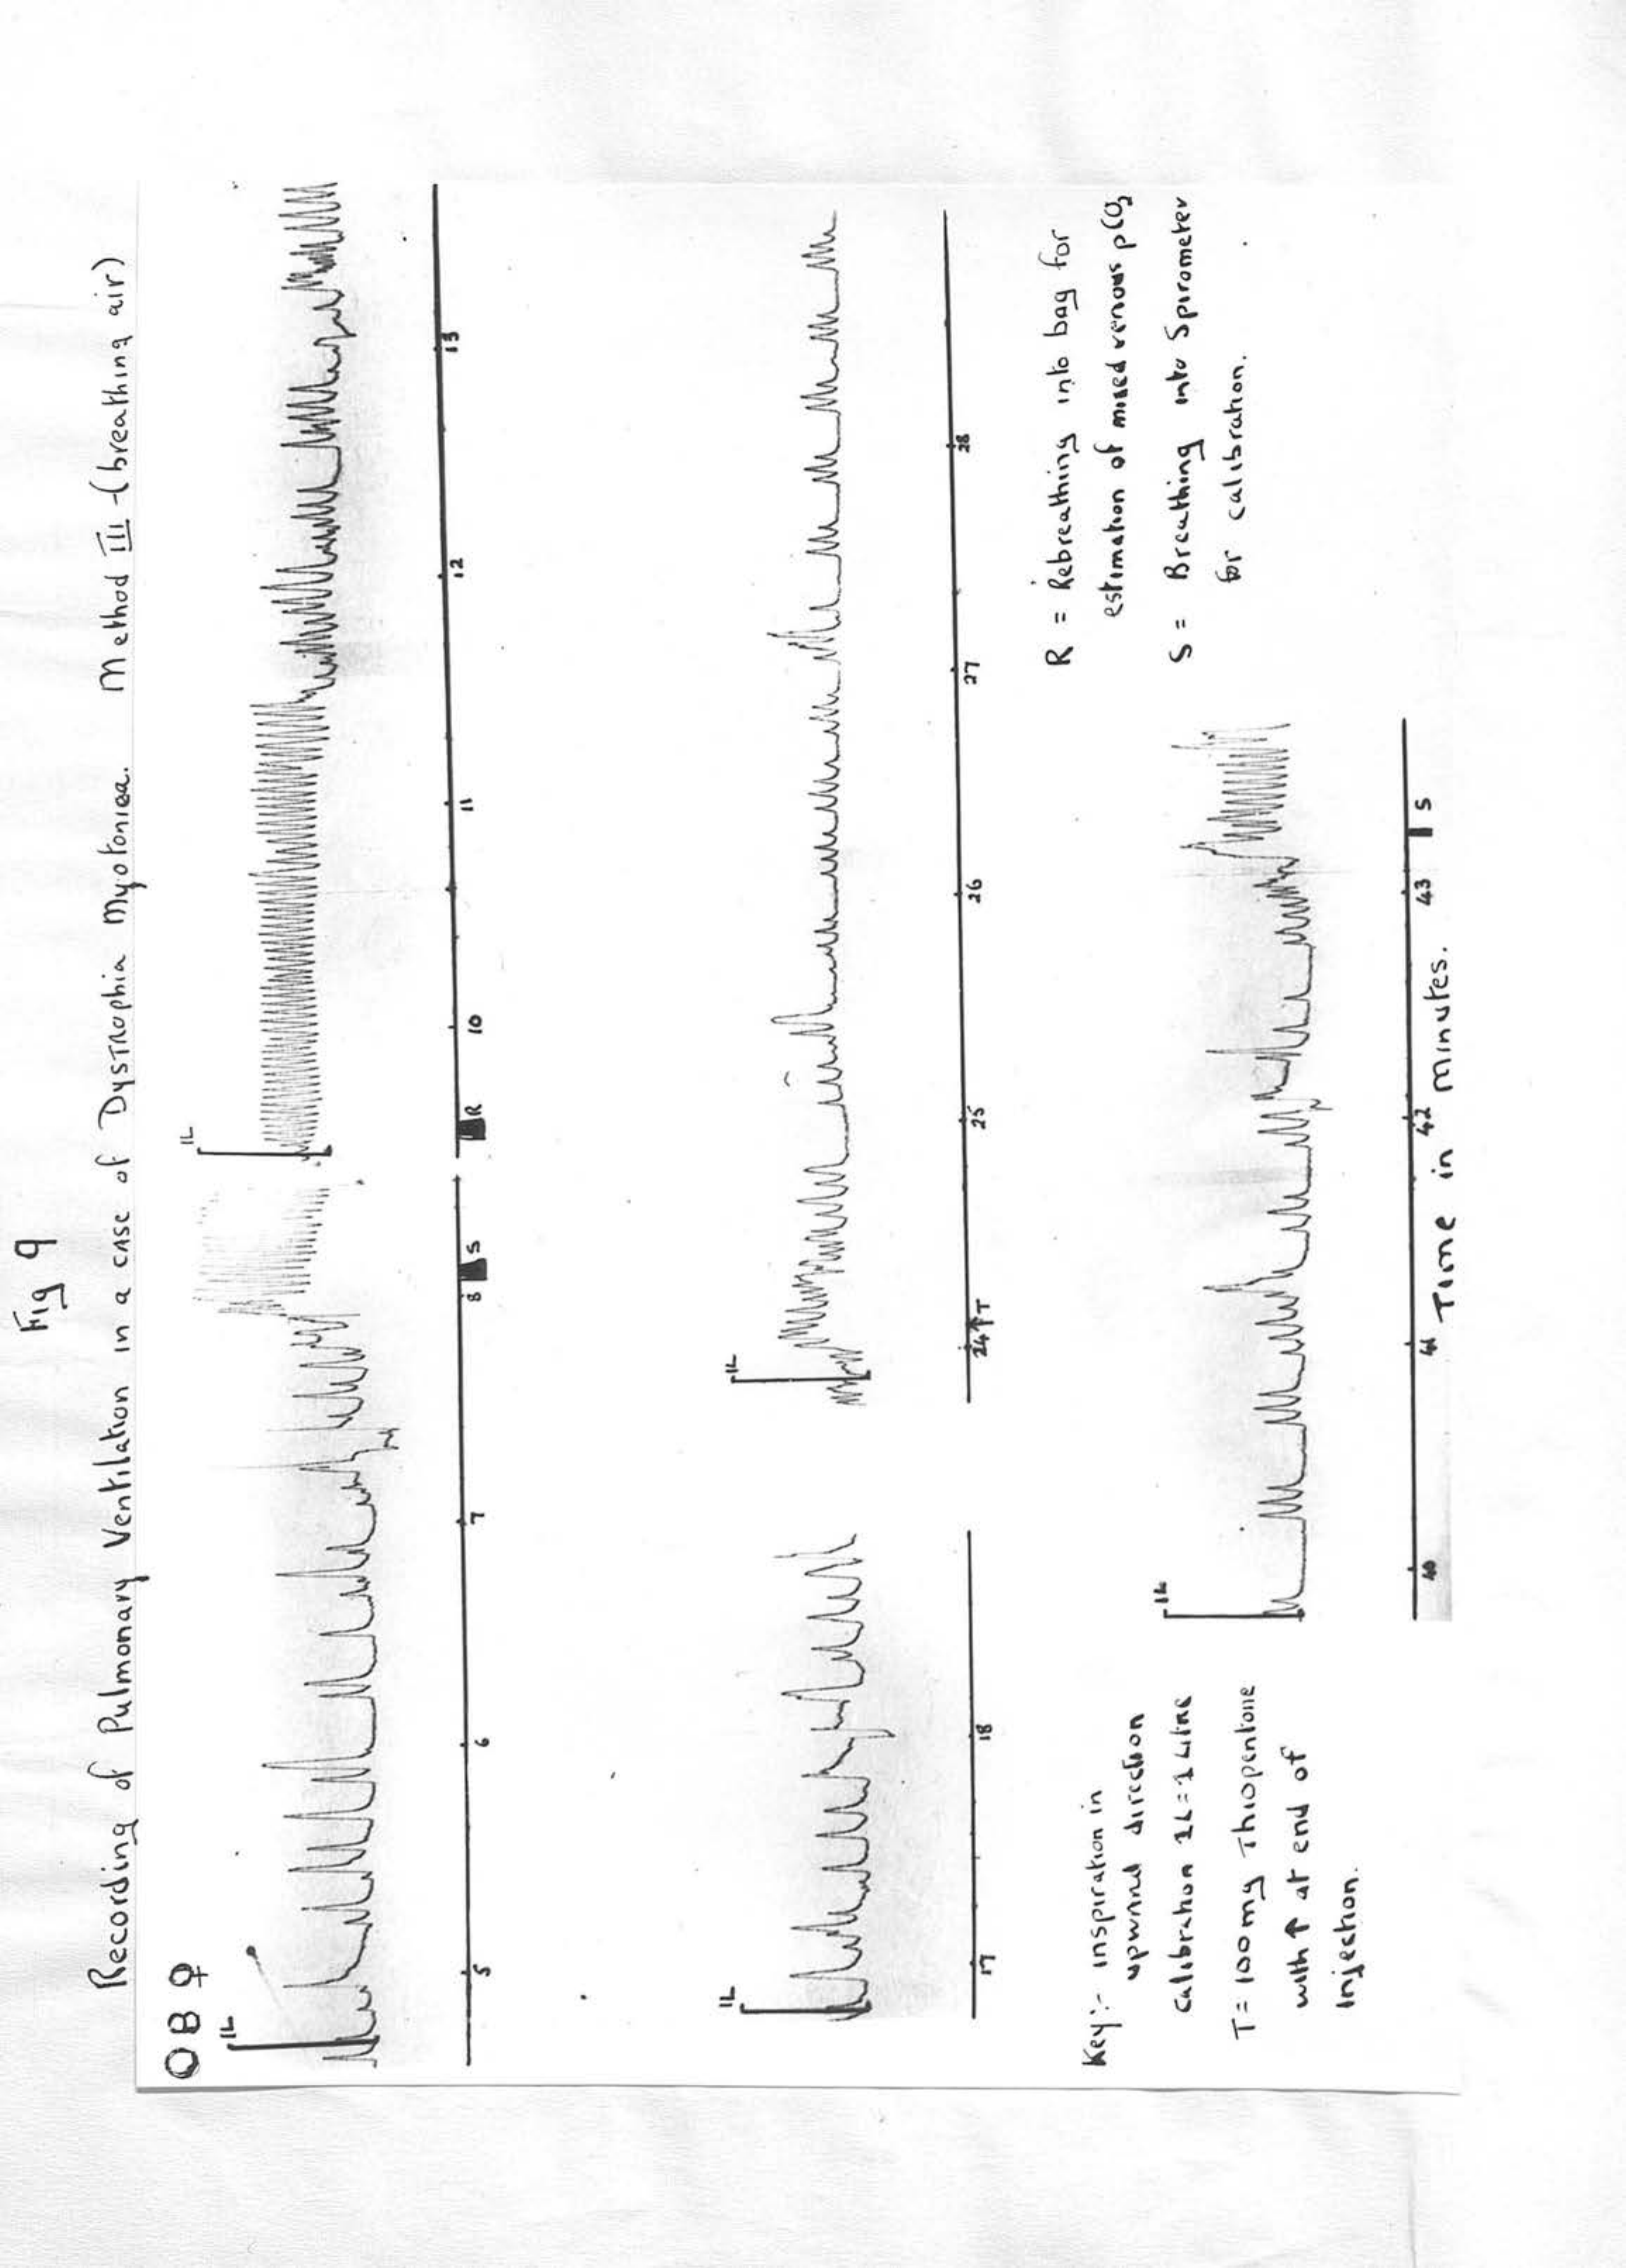 Fig 9
Recording of Pulmonary Ventilation in a case of Dystrophia Myotonica. Method III -(breathing air)
O B ♀
1L
1L
5 6 7 8 S R 10 11 12 13
1L
1L
17 18 24 ↑T 25 26 27 28
Key:- inspiration in
upward direction
Calibration 1L = 1 Litre
T = 100mg Thiopentone
with ↑ at end of
Injection.
R = Rebreathing into bag for
estimation of mixed venous pCO2
S = Breathing into Spirometer
for calibration.
1L
40 41 42 43 S
Time in Minutes.